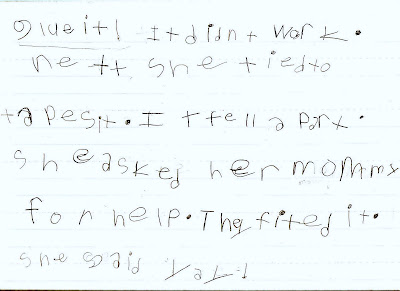 glue it! It didn t work.
ne tt she tied to
tapesit. I t fell a part.
sh e asked her mommy
for help. They fited it.
she said yay!